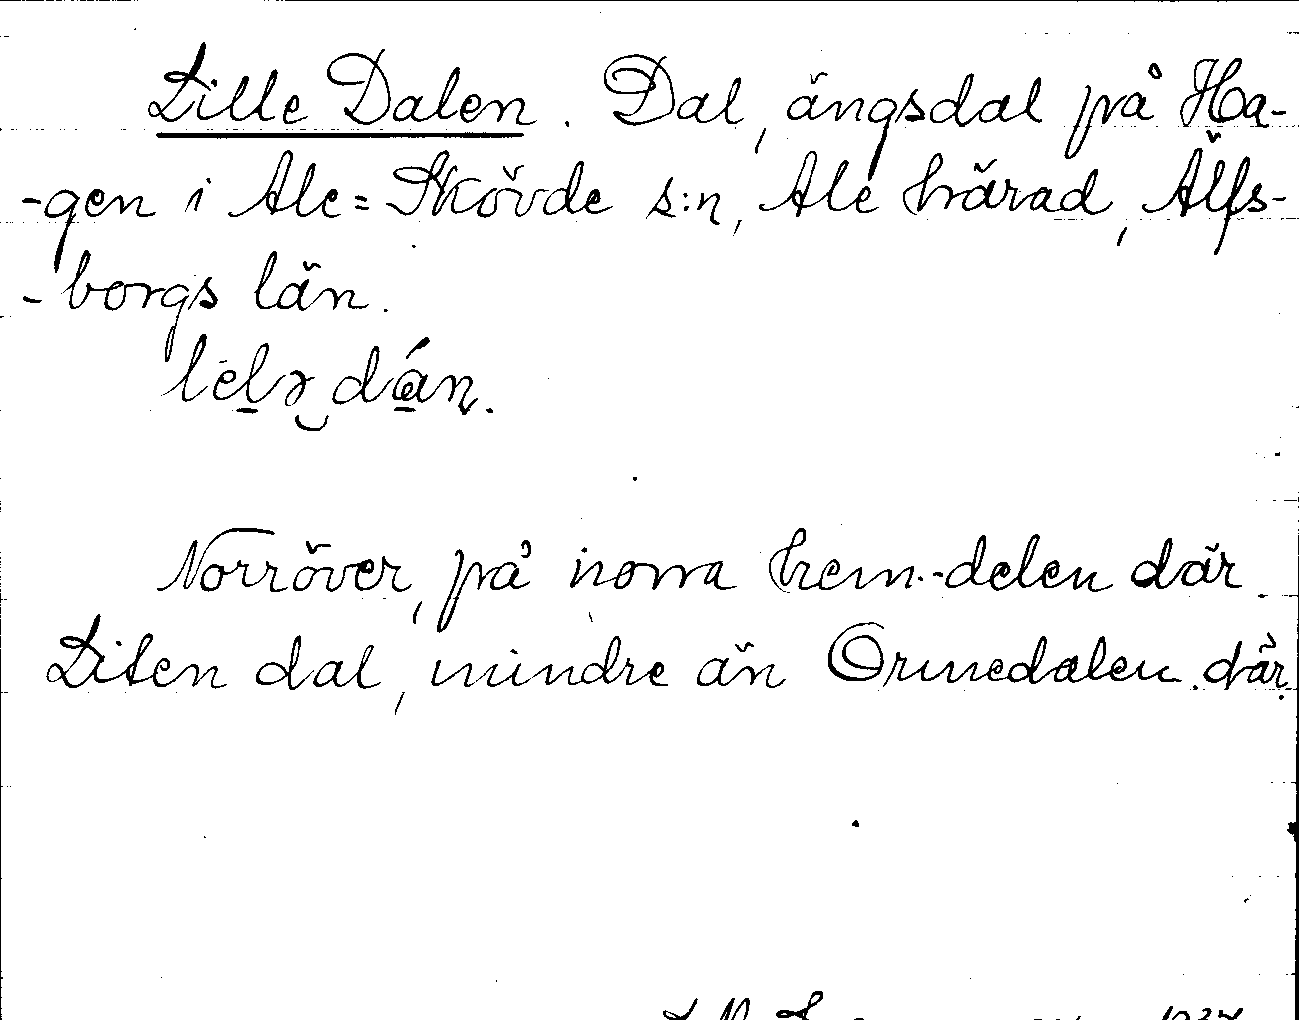 Lille Dalen. Dal, ängsdal på Ha-
-gen i Ale=Skövde s:n, Ale härad, Älfs-
-borgs län.
lelə dán.
Norröver, på norra hem-delen där.
Liten dal, mindre än Ormedalen där.